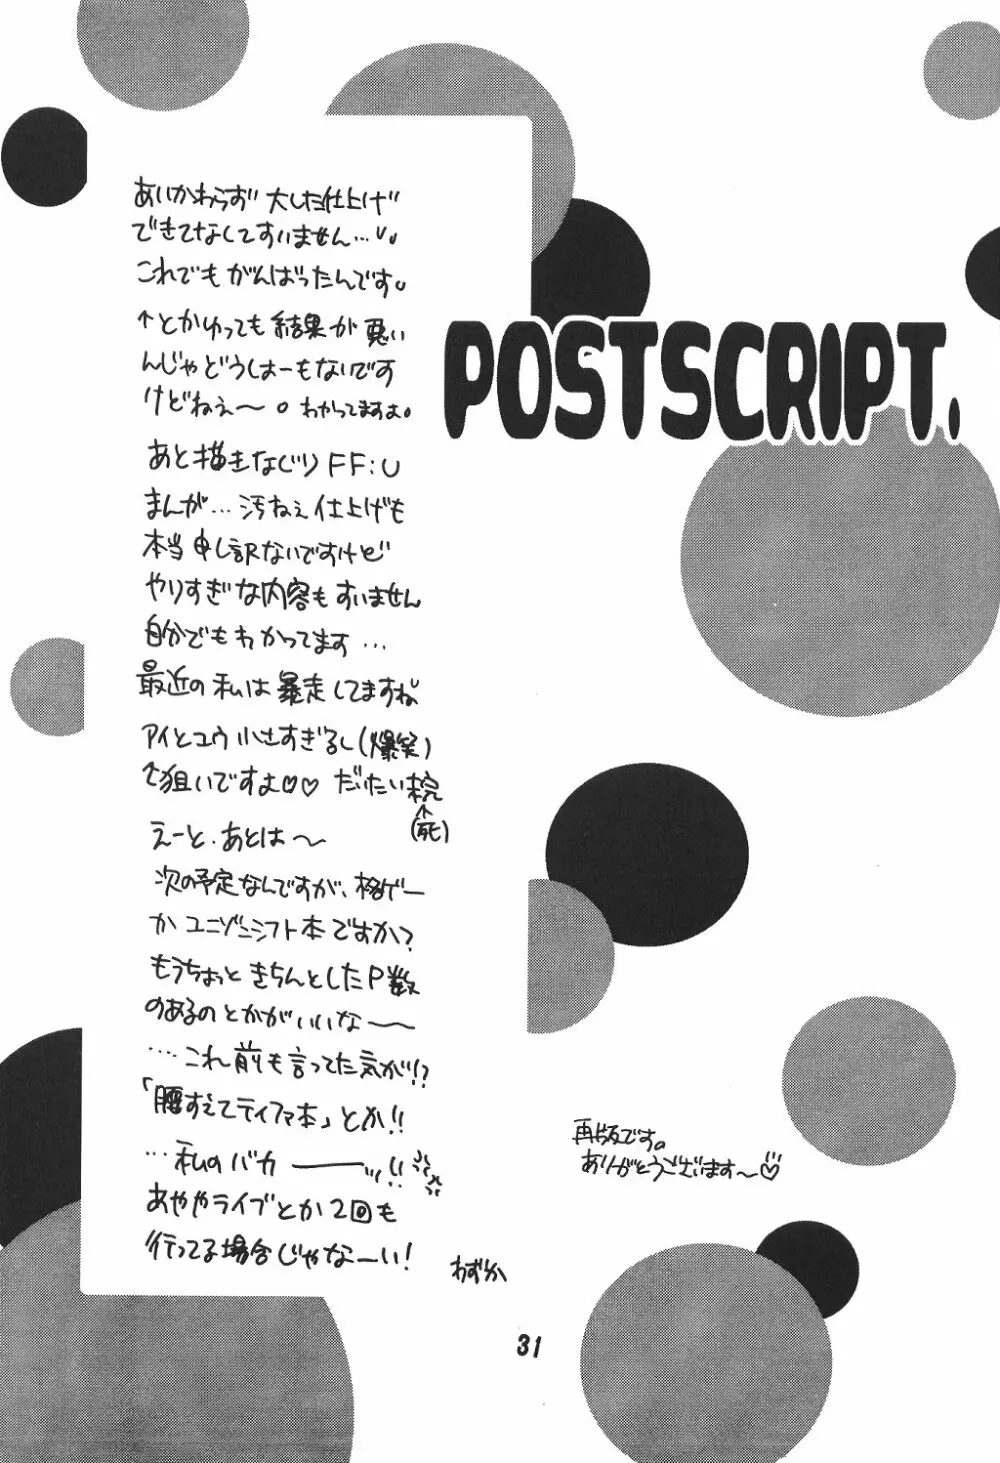 POSTSCRIPT.
あいかわらず大した仕上げ
できてなくてすいません…
これでもがんばったんです。
↑とかゆっても結果が悪い
んじゃどうしよーもないです
けどねぇ〜。わかってますよ。
あと描きなぐりFF:U
まんが…汚ねぇ仕上げも
本当申し訳ないですけど
やりすぎな内容もすいません
自分でもわかってます…
最近の私は暴走してますね。
アイとユウ小さすぎるし(爆笑)
↑狙いですよ♡♡ だいたい
↑
(死)
えーと、あとは〜
次の予定なんですが、格ゲー
かユニゾンシフト本ですか?
もうちょっときちんとしたP数
のあるのとかがいいな——
….これ前も言ってた気が!?
「腰すえてティファ本」とか!!
…私のバカ———ッ!!
あややライブとか2回も
行ってる場合じゃなーい!
わずか
再版です。
ありがとうございます〜♡
31